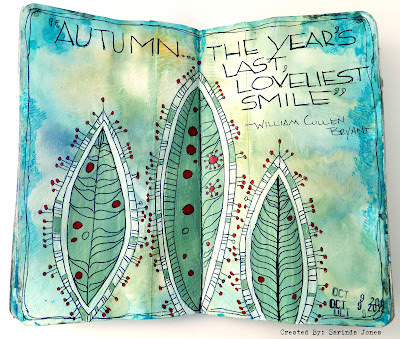 "AUTUMN... THE YEAR'S
LAST,
LOVELIEST
SMILE"
-WILLIAM CULLEN
BRYANT
OCT
OCT
Created By: Sarinda Jones